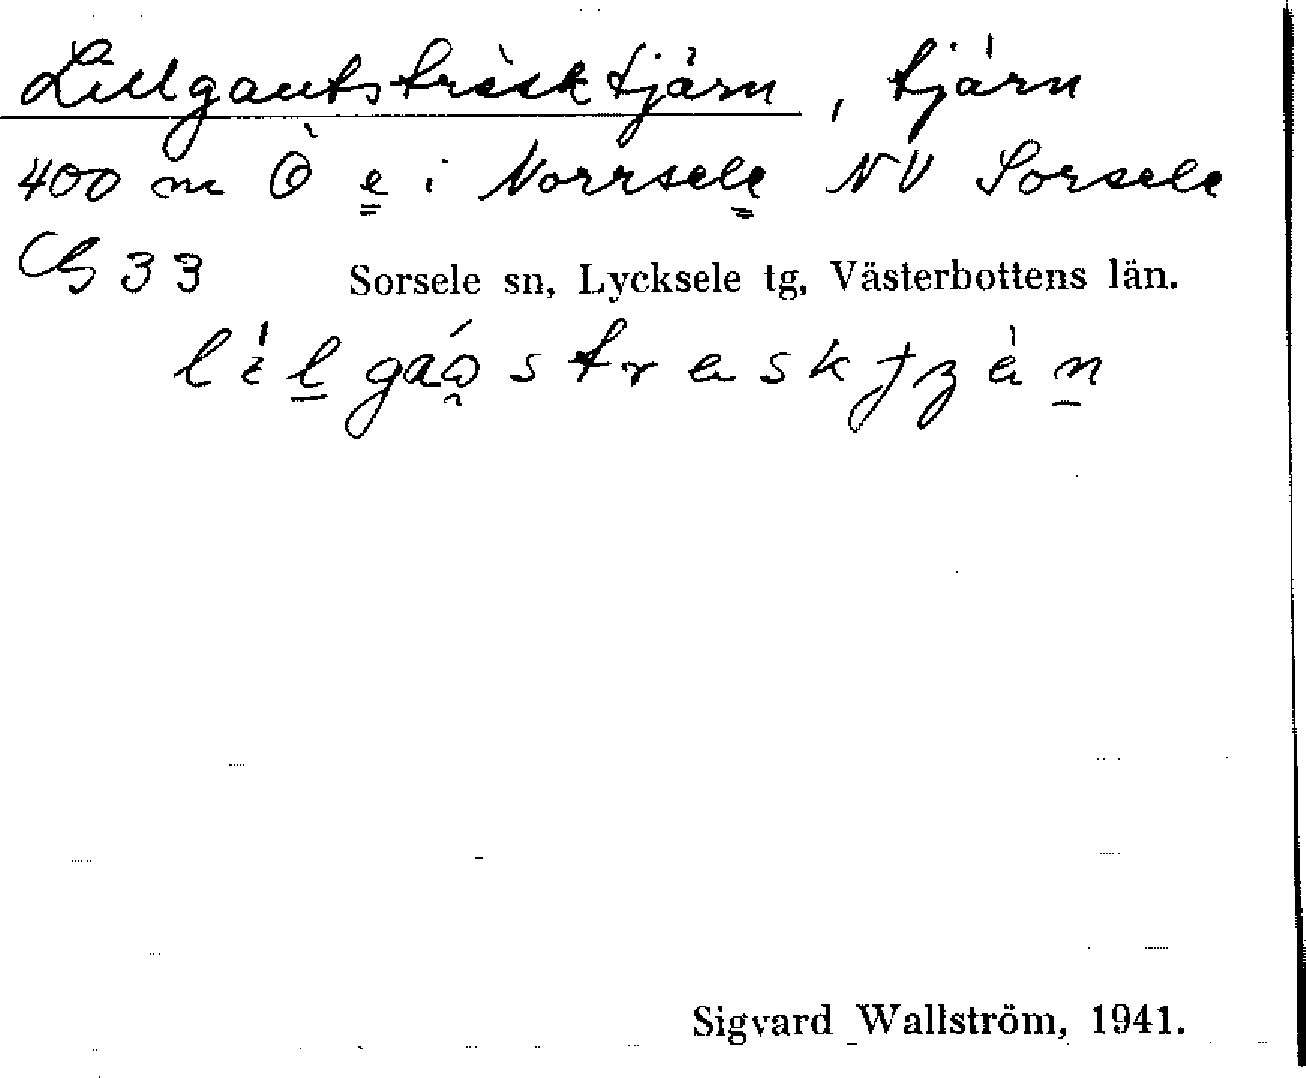 Lillgautsträsktjärn, tjärn
400 m Ö e i Norrsele NV Sorsele
33
Sorsele sn, Lycksele tg, Västerbottens län.
Sigvard Wallström, 1941.